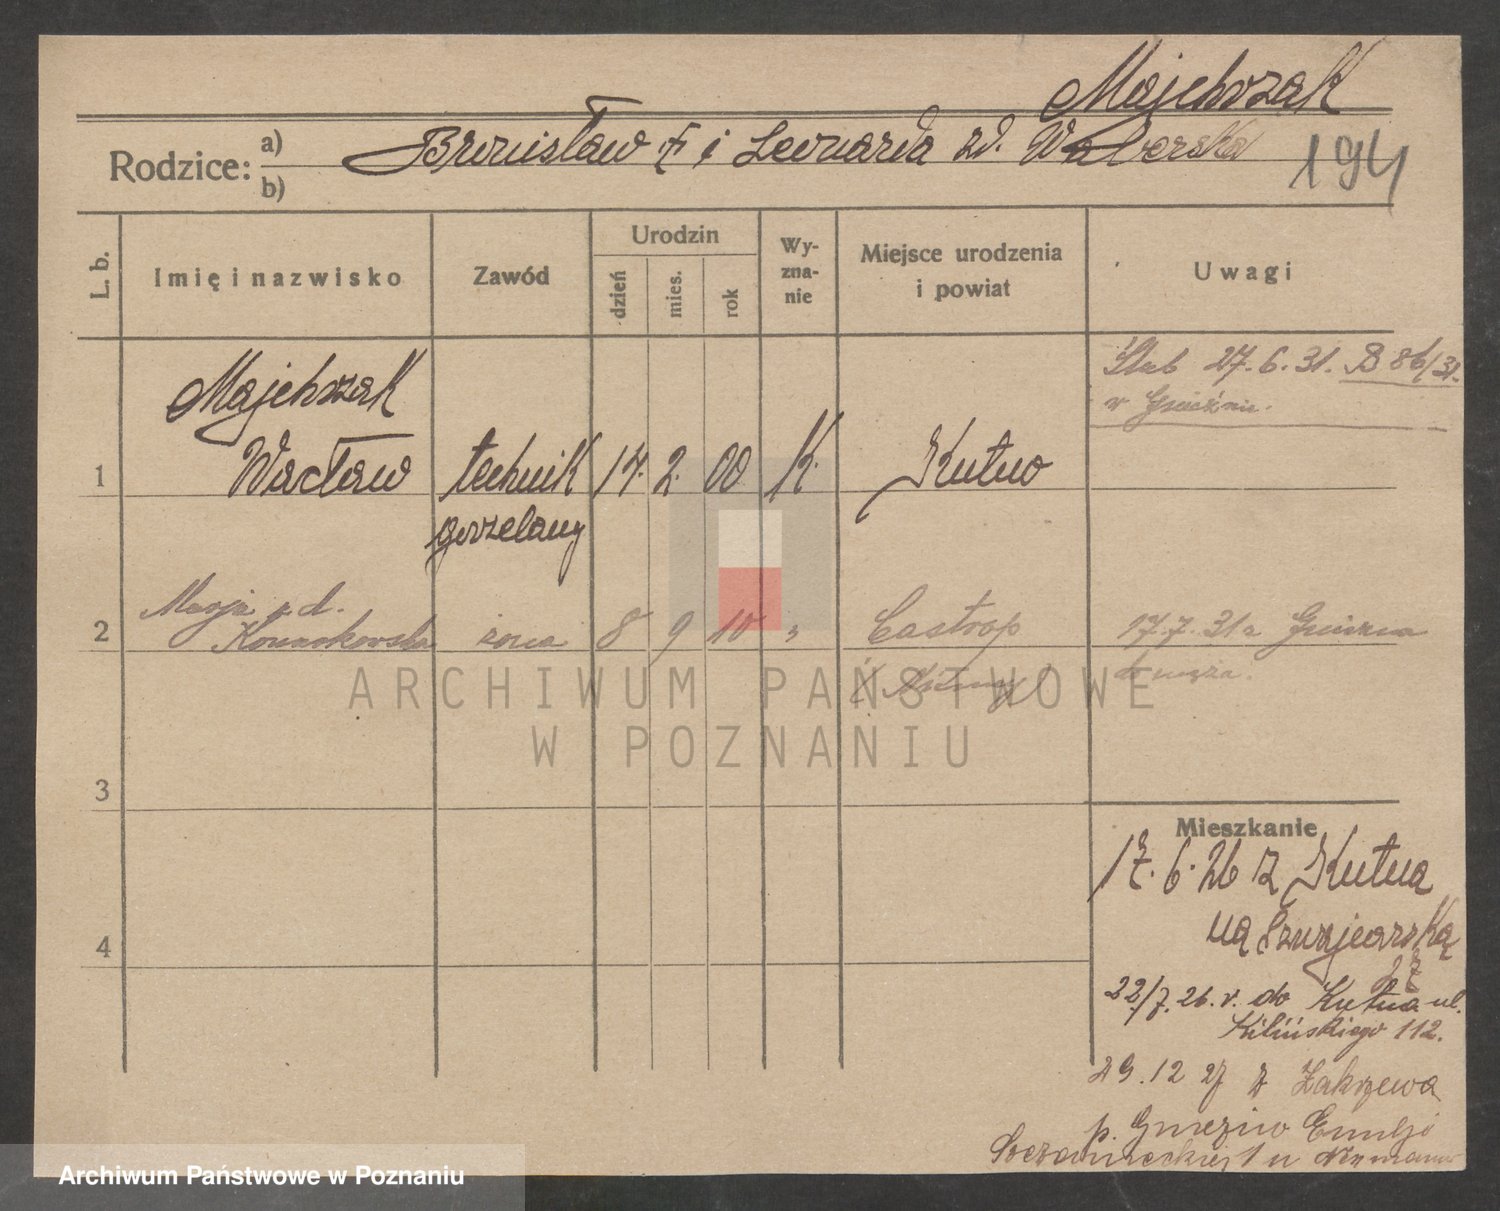 Majchrzak
Rodzice: a) Bronisław † i Leonarda zd. Walerska
b)
194
L. b.
Imię i nazwisko
Zawód
Urodzin
dzień
mies.
rok
Wy-
zna-
nie
Miejsce urodzenia
i powiat
Uwagi
Ślub 27.6.31. B 86/31.
w Gnieźnie.
Majchrzak
1 Wacław technik 14. 2. 00 K. Kutno
gorzelany
Marja z d.
2 żona 8 9 10 " Castrop 17.7.31 z Gniezna
do męża.
ARCHIWUM PAŃSTWOWE
W POZNANIU
3
Mieszkanie
17.6.26 z Kutna
na Szwajcarską
4
22/7.26.r. do Kutna ul.
Kilińskiego 112.
29.12 27 z Zakrzewa
p. Gniezno Emilji
1 u
Archiwum Państwowe w Poznaniu